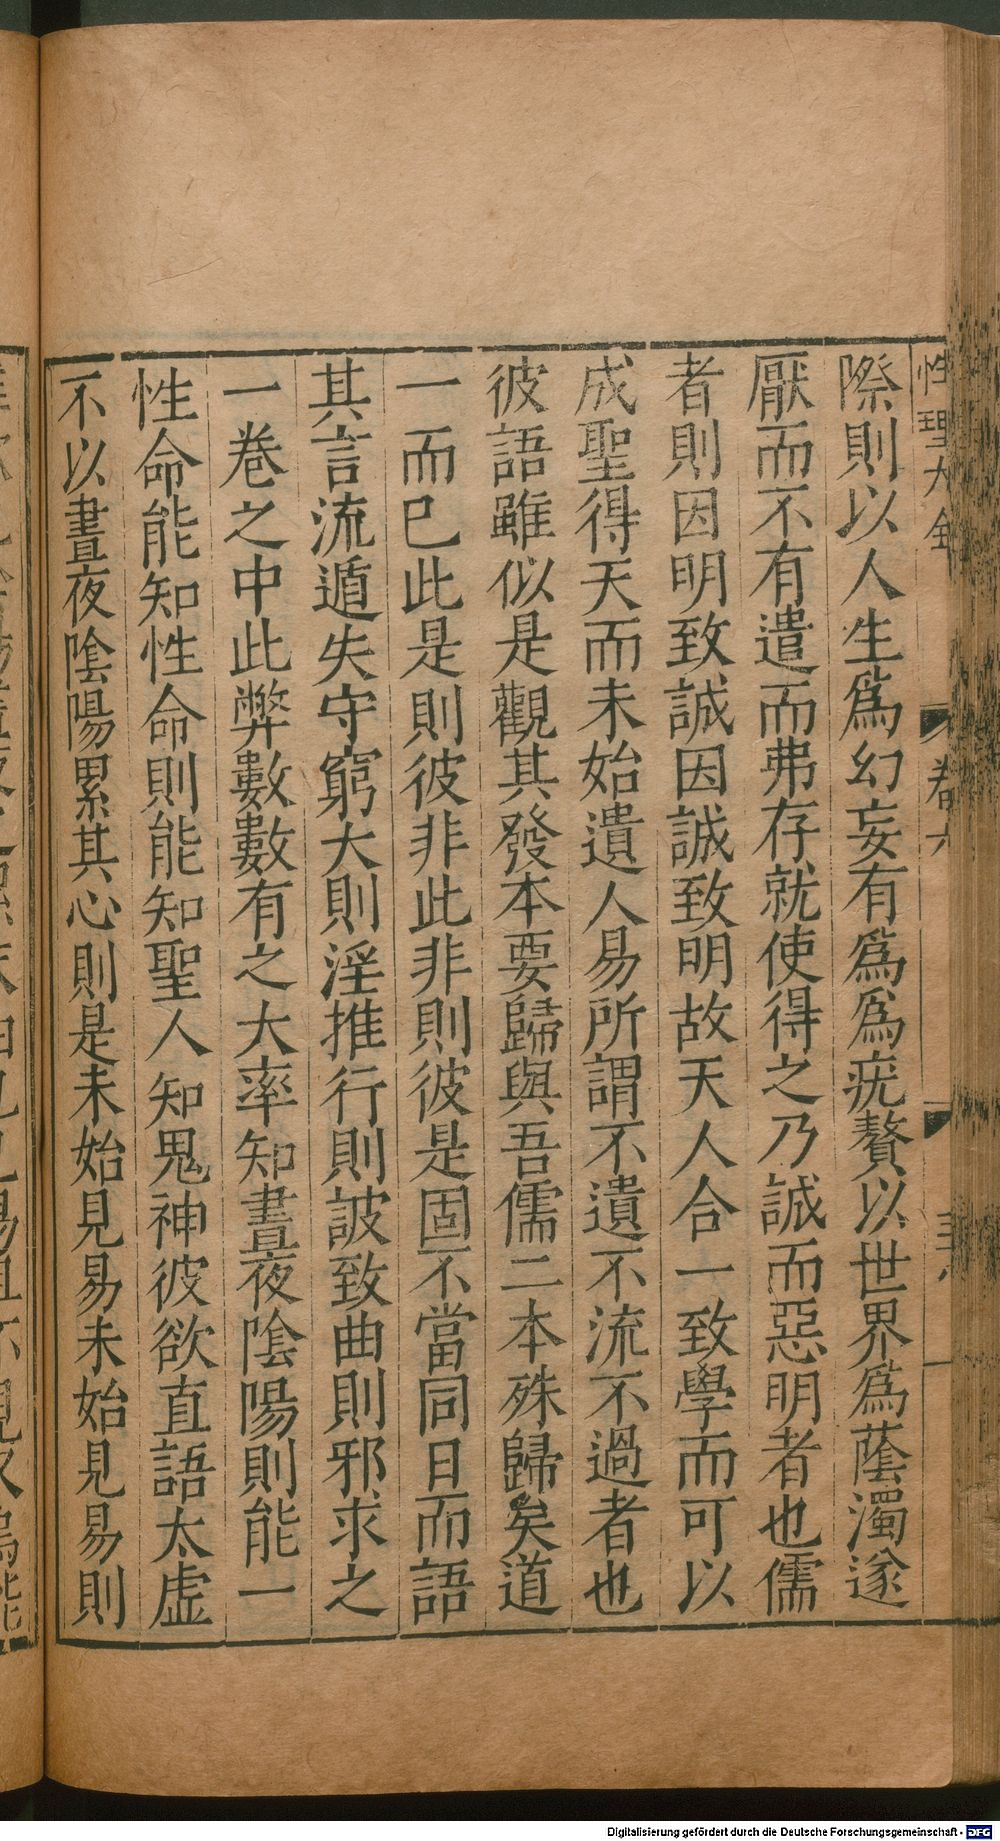 性理大全
卷六
際則以人生爲幻妄有爲爲疣贅以世界爲蔭濁遂
厭而不有遣而弗存就使得之乃誠而惡明者也儒
者則因明致誠因誠致明故天人合一致學而可以
成聖得天而未始遺人易所謂不遺不流不過者也
彼語雖似是觀其發本要歸與吾儒二本殊歸矣道
一而已此是則彼非此非則彼是固不當同日而語
其言流遁失守窮大則淫推行則詖致曲則邪求之
一卷之中此弊數數有之大率知晝夜陰陽則能一
性命能知性命則能知聖人知鬼神彼欲直語太虛
不以晝夜陰陽累其心則是未始見易未始見易則
Digitalisierung gefördert durch die Deutsche Forschungsgemeinschaft - DFG